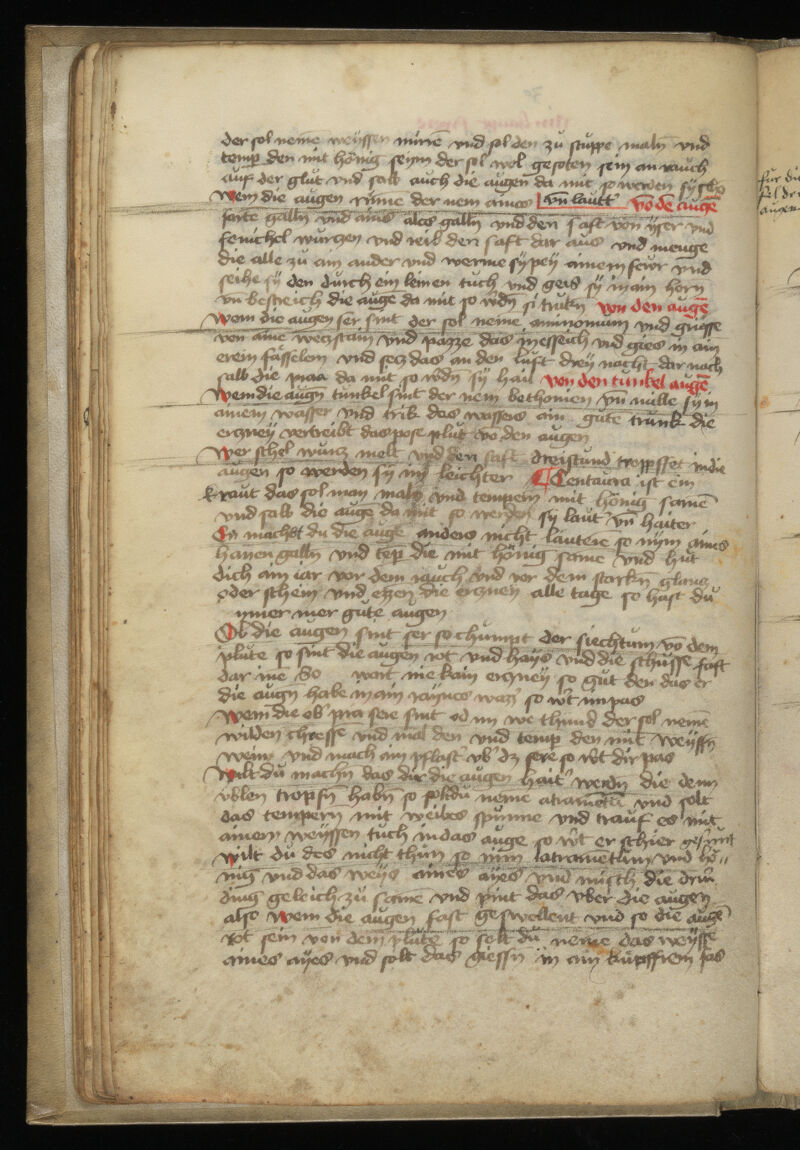 der sol neme weyssen mirre vnd sol den zu stuppe maln vnd
temp den mit hönig seym der sol wol gesoten sein an rauch
auf der glut vnd salb auch die augen da mit so werden sy
Wem die augen rinne der nem aines vn lautt vo de auge
galln vnd ains ales galln vnd den saft von yser vnd
fenichel wurczen vnd reib den saft dar aus vnd menge
die alle zu ain ander vnd werme sy pey ainem fewr vnd
seihe sy den durch ein leinen tuch vnd geis sy in ain horn
vn bestreich die auge da mit so wdn si trukn von den auge
Wem die augen ser sint der sol neme vnd
von aine weczstain vnd das messeich vnd gies in ain
erein fasselein vnd secz das an den luft drey nacht dar nach
salb die praa da mit so wdn sy hail von den tunkel auge
Wem die augn tunkel sint der nem bethonien vn mille sy in
ainem wasser vnd trik das wassers ain gute trunk die
erczney vertreibt das pose plut vo den augen
Wer schel wurcz melt vnd den saft dreistund tropffet in die
augen so werden sy im leichter Centaura ist ein
kraut das sol man maln vnd tempern mit hönig same
vnd salb die auge da mit so werden sy laut vn haiter
En machst du die auge anders nicht lautere so nym aines
hanen galln vnd tep die mit hönig same vnd hut
dich ain iar vor dem rauch vnd vor dem starkn glancz
oder schein vnd eczen die erczney alle tage so hast du
imer mer gute augen
Ob die augen sint ser so chumpt der siechtum vo dem
plute so sint die augen rot vnd hays vnd die schusse fast
dar ine So wart nie kain erczney so gut den das er
die augn habe in ain raynes wazz so wt im pas
Wem die ob praa sere sint od im we thund der sol neme
wilden chresse vnd mal den vnd temp den mit weyssn
wein vnd mach ain pflast vb dz sere so wt dir pas
Wilt du machn das dir die augen hait werdn die denn
vblen tropfn habn so soltdu neme atrametu vnd solt
das tempern mit weibes spunne vnd trauf es mit
ainem weyssen tuch in das auge so wt er schier gesunt
Wilt du des nicht thun so nim atrametum vnd hö=
nig vnd das weys aines ayes vnd misch die drw
ding geleich zu same vnd pint das vber die augen
also Wem die augen fast geswollent vnd so die auge
Rot sein von dem plute so solt du neme das weysse
aines ayes vnd solt das giessn in ain kupffrem fas